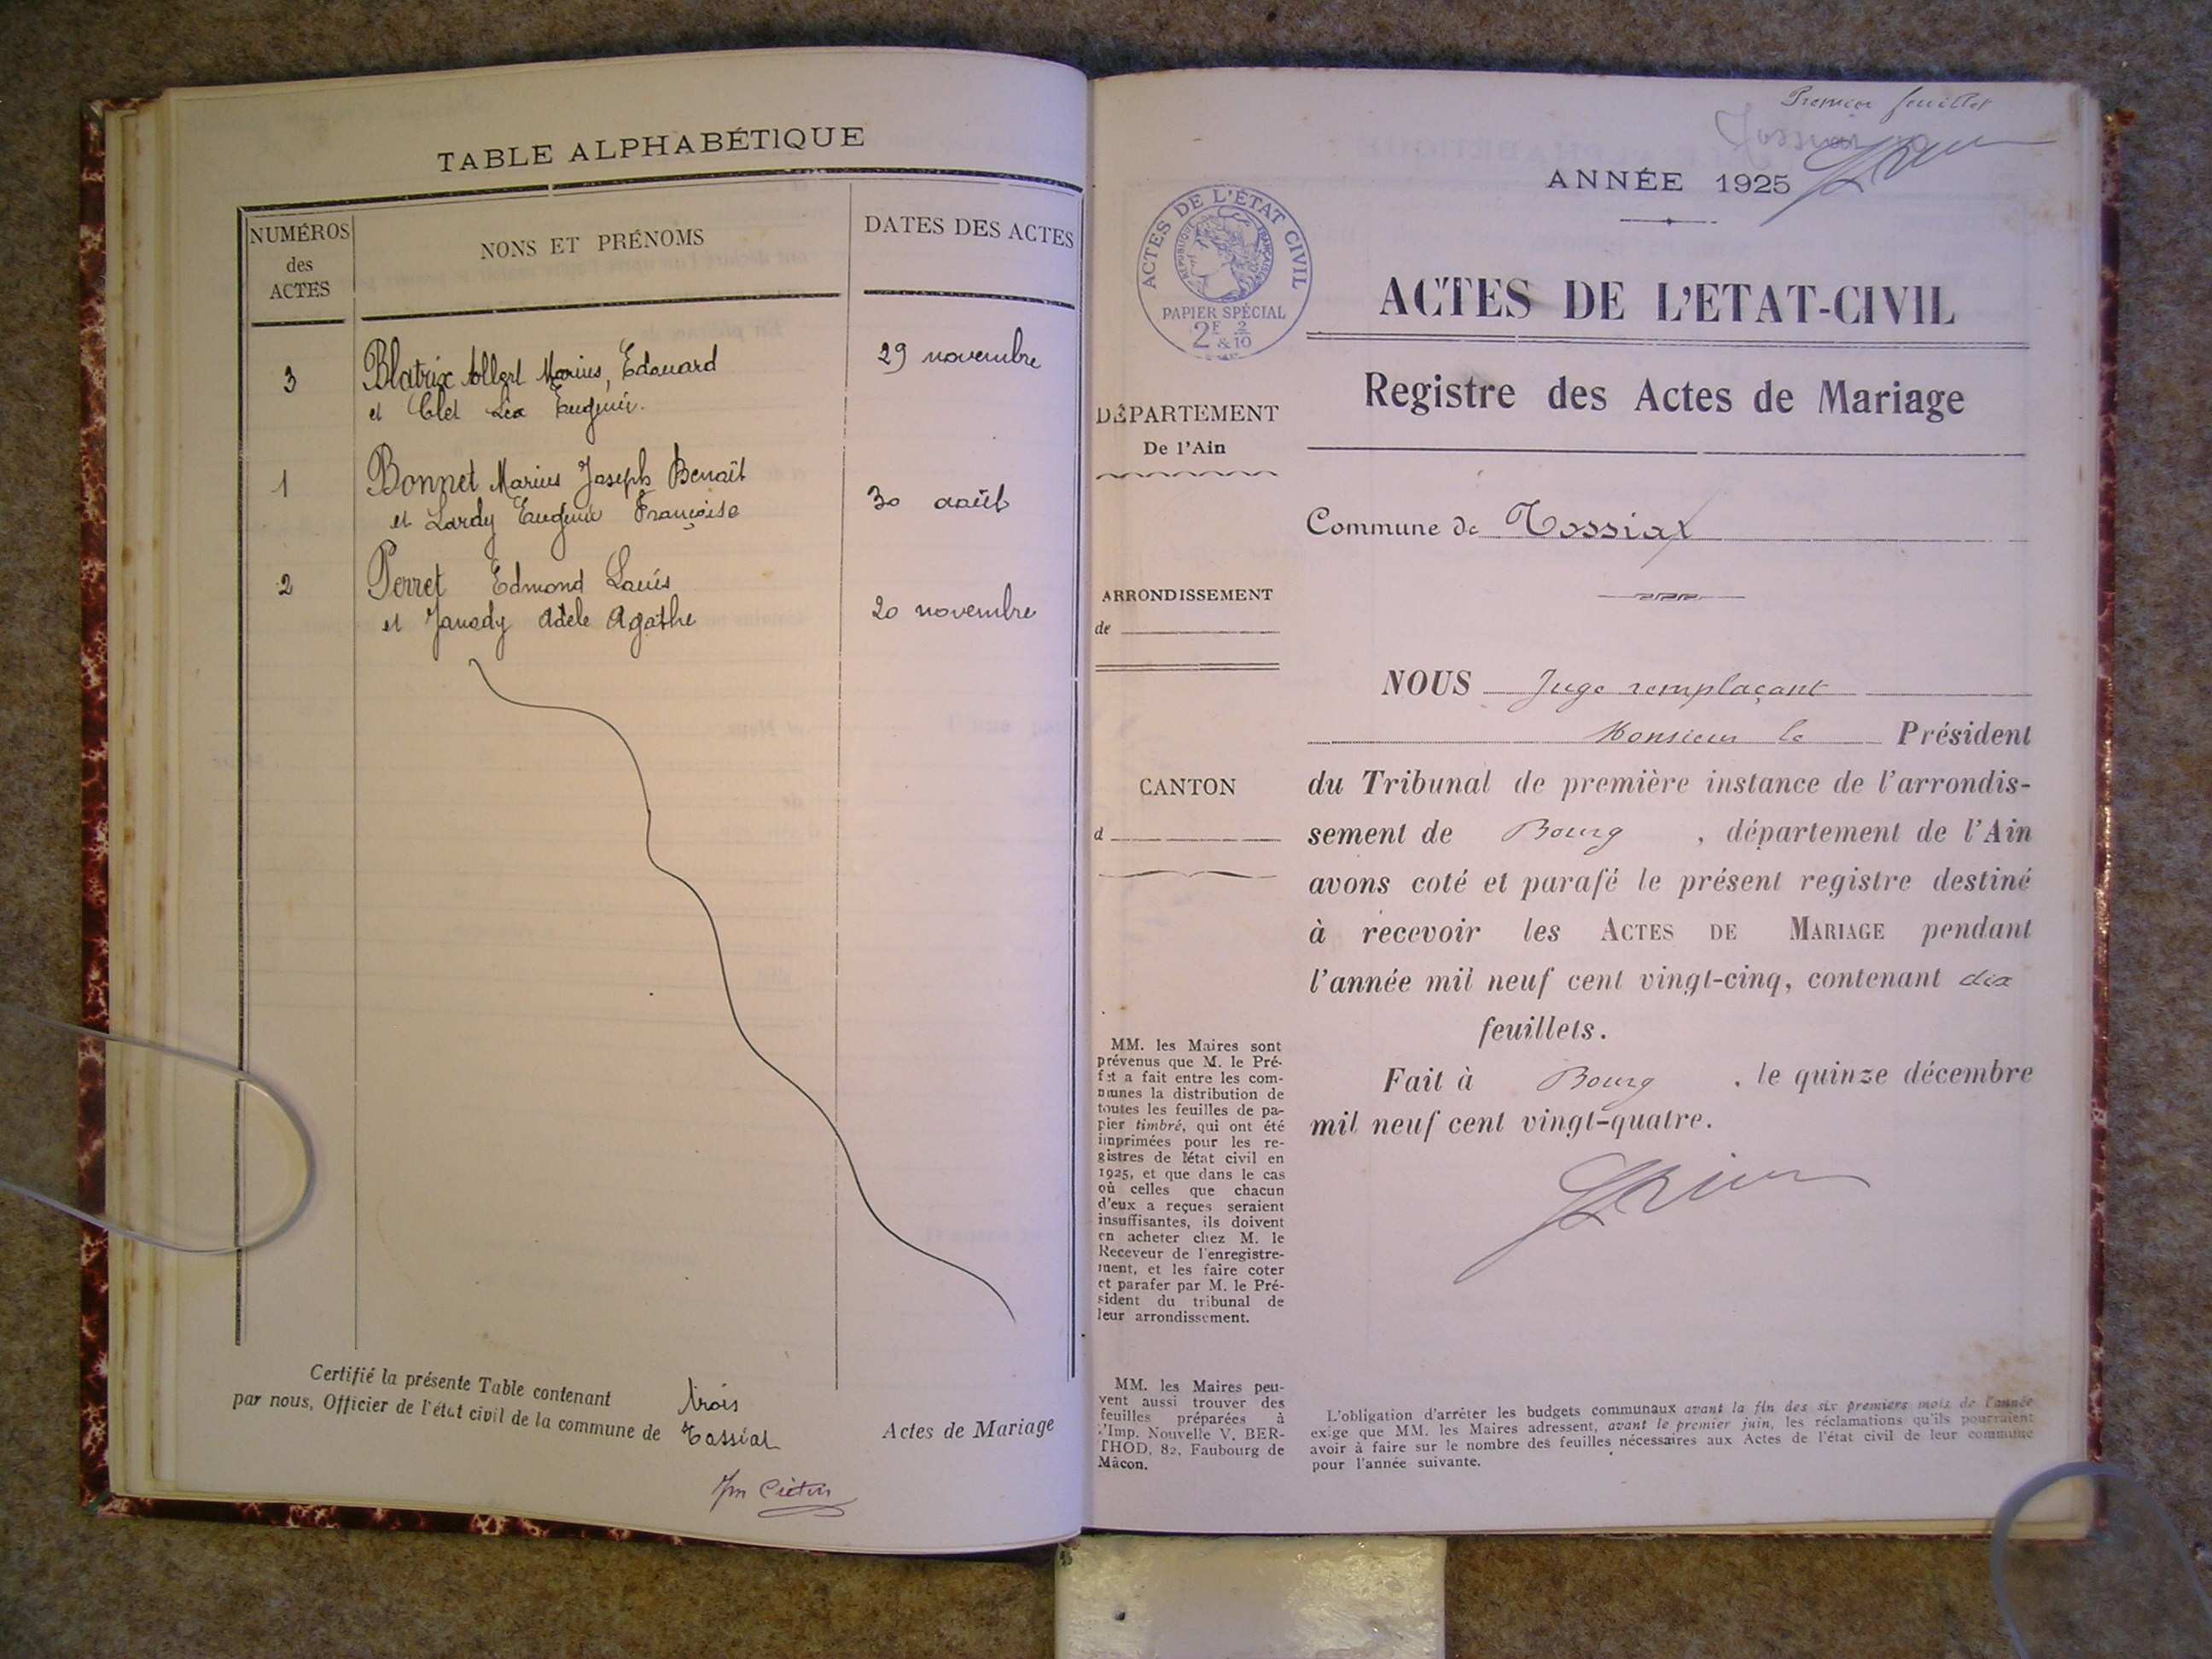 TABLE ALPHABÉTIQUE
NUMÉROS
des
ACTES
NONS ET PRÉNOMS
DATES DES ACTES
3
Blatrix Albert Marius, Edouard
et Clet Léa Eugenie.
29 novembre
1
Bonnet Marius Joseph Benoît
et Lardy Eugenie Françoise
30 août
2
Perret Edmond Louis
et Janody Adèle Agathe
20 novembre
Certifié la présente Table contenant trois Actes de Mariage
par nous, Officier de l'état civil de la commune de Tossiat
Premier feuillet
ANNÉE 1925
ACTES DE L'ÉTAT CIVIL
RÉPUBLIQUE FRANÇAISE
PAPIER SPÉCIAL
2F 2
& 10
ACTES DE L'ETAT-CIVIL
Registre des Actes de Mariage
DÉPARTEMENT
De l'Ain
Commune de Tossiat
ARRONDISSEMENT
de
CANTON
d
NOUS Juge remplaçant
Monsieur le Président
du Tribunal de première instance de l'arrondis-
sement de Bourg, département de l'Ain
avons coté et parafé le présent registre destiné
à recevoir les ACTES DE MARIAGE pendant
l'année mil neuf cent vingt-cinq, contenant dix
feuillets.
Fait à Bourg, le quinze décembre
mil neuf cent vingt-quatre.
MM. les Maires sont
prévenus que M. le Pré-
fet a fait entre les com-
munes la distribution de
toutes les feuilles de pa-
pier timbré, qui ont été
imprimées pour les re-
gistres de l'état civil en
1925, et que dans le cas
où celles que chacun
d'eux a reçues seraient
insuffisantes, ils doivent
en acheter chez M. le
Receveur de l'enregistre-
ment, et les faire coter
et parafer par M. le Pré-
sident du tribunal de
leur arrondissement.
MM. les Maires peu-
vent aussi trouver des
feuilles préparées à
l'Imp. Nouvelle V. BER-
THOD, 82, Faubourg de
Mâcon.
L'obligation d'arrêter les budgets communaux avant la fin des six premiers mois de l'année
exige que MM. les Maires adressent, avant le premier juin, les réclamations qu'ils pourraient
avoir à faire sur le nombre des feuilles nécessaires aux Actes de l'état civil de leur commune
pour l'année suivante.